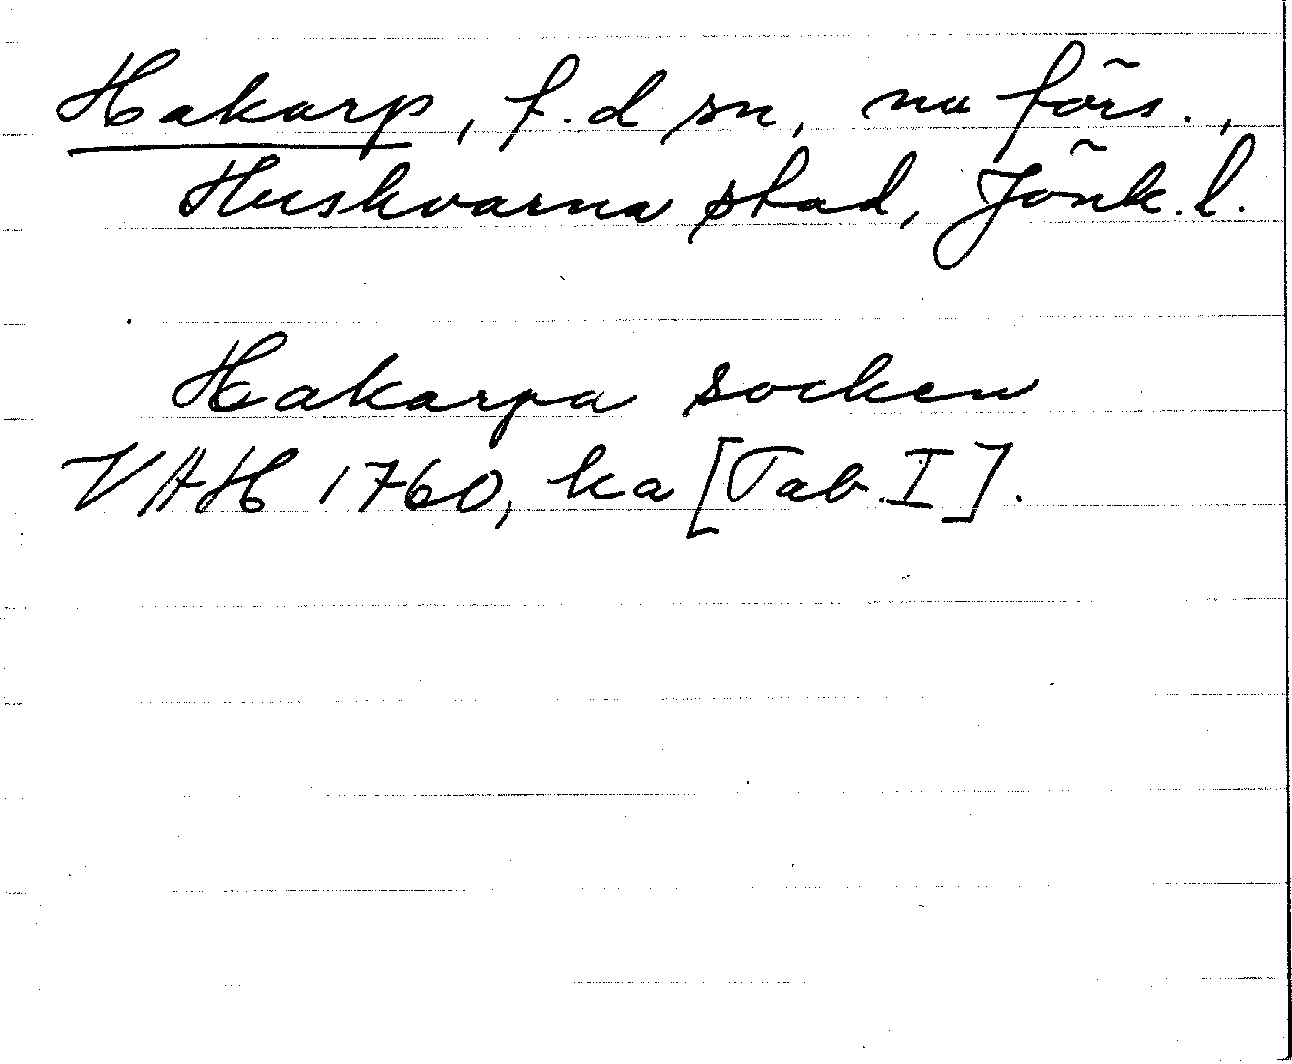 Hakarp, f.d sn, nu förs.,
Huskvarna stad, Jönk.l.
Hakarpa socken
VAH 1760, ka [Tab.I].